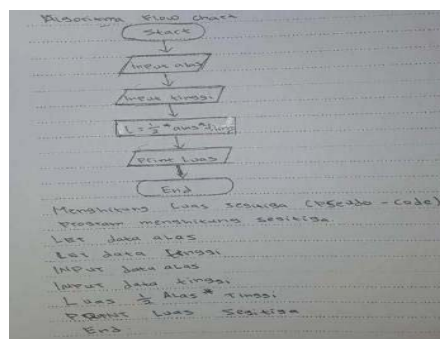 Algoritma Flow chart
Start
Input alas
Input tinggi
L = 1/2 * alas * tinggi
Print Luas
End
Menghitung Luas segitiga (Pseudo - Code)
Program menghitung segitiga.
Let data alas
Let data tinggi
Input data alas
Input data tinggi
Luas 1/2 Alas * Tinggi
PRINT Luas Segitiga
End